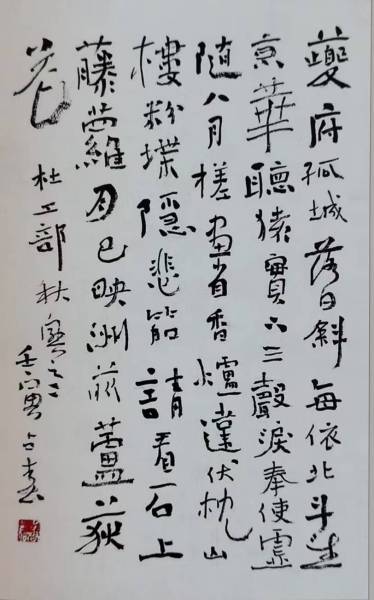 夔府孤城落日斜每依北斗望
京華聽猿實下三聲淚奉使虛
隨八月槎畫省香爐違伏枕山
樓粉堞隱悲笳請看石上
藤蘿月已映洲前蘆荻
花
杜工部秋興之二
壬寅